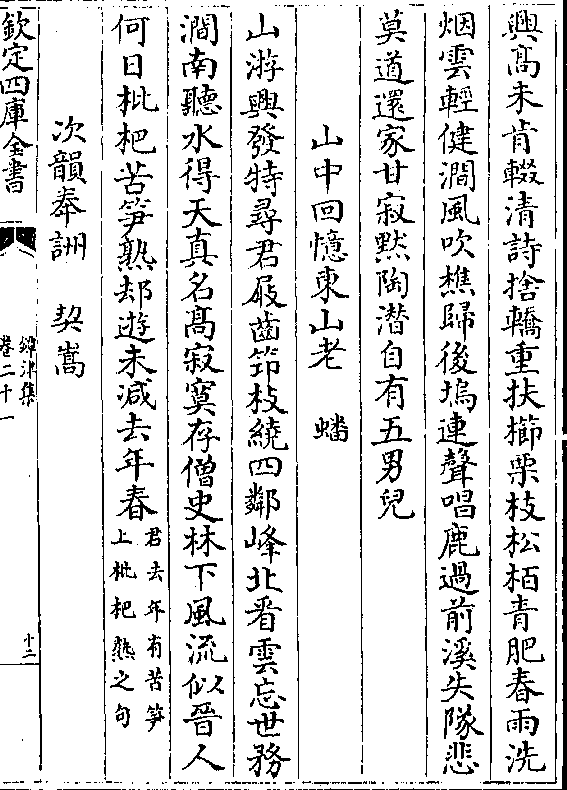 興髙未肯輟清詩捨轎重扶櫛栗枝松栢青肥春雨洗
烟雲輕健澗風吹樵歸後塢連聲唱鹿過前溪失隊悲
莫道還家甘寂黙陶潛自有五男兒
山中回憶東山老　蟠
山游興發特尋君屐齒笻枝繞四鄰峰北看雲忘世務
澗南聽水得天真名髙寂寞存僧史林下風流似晉人
何日枇杷苦笋熟却遊未減去年春君去年有苦笋上枇杷熟之句
次韻奉詶　契嵩
欽定四庫全書
鐔津集
卷二十一
十二